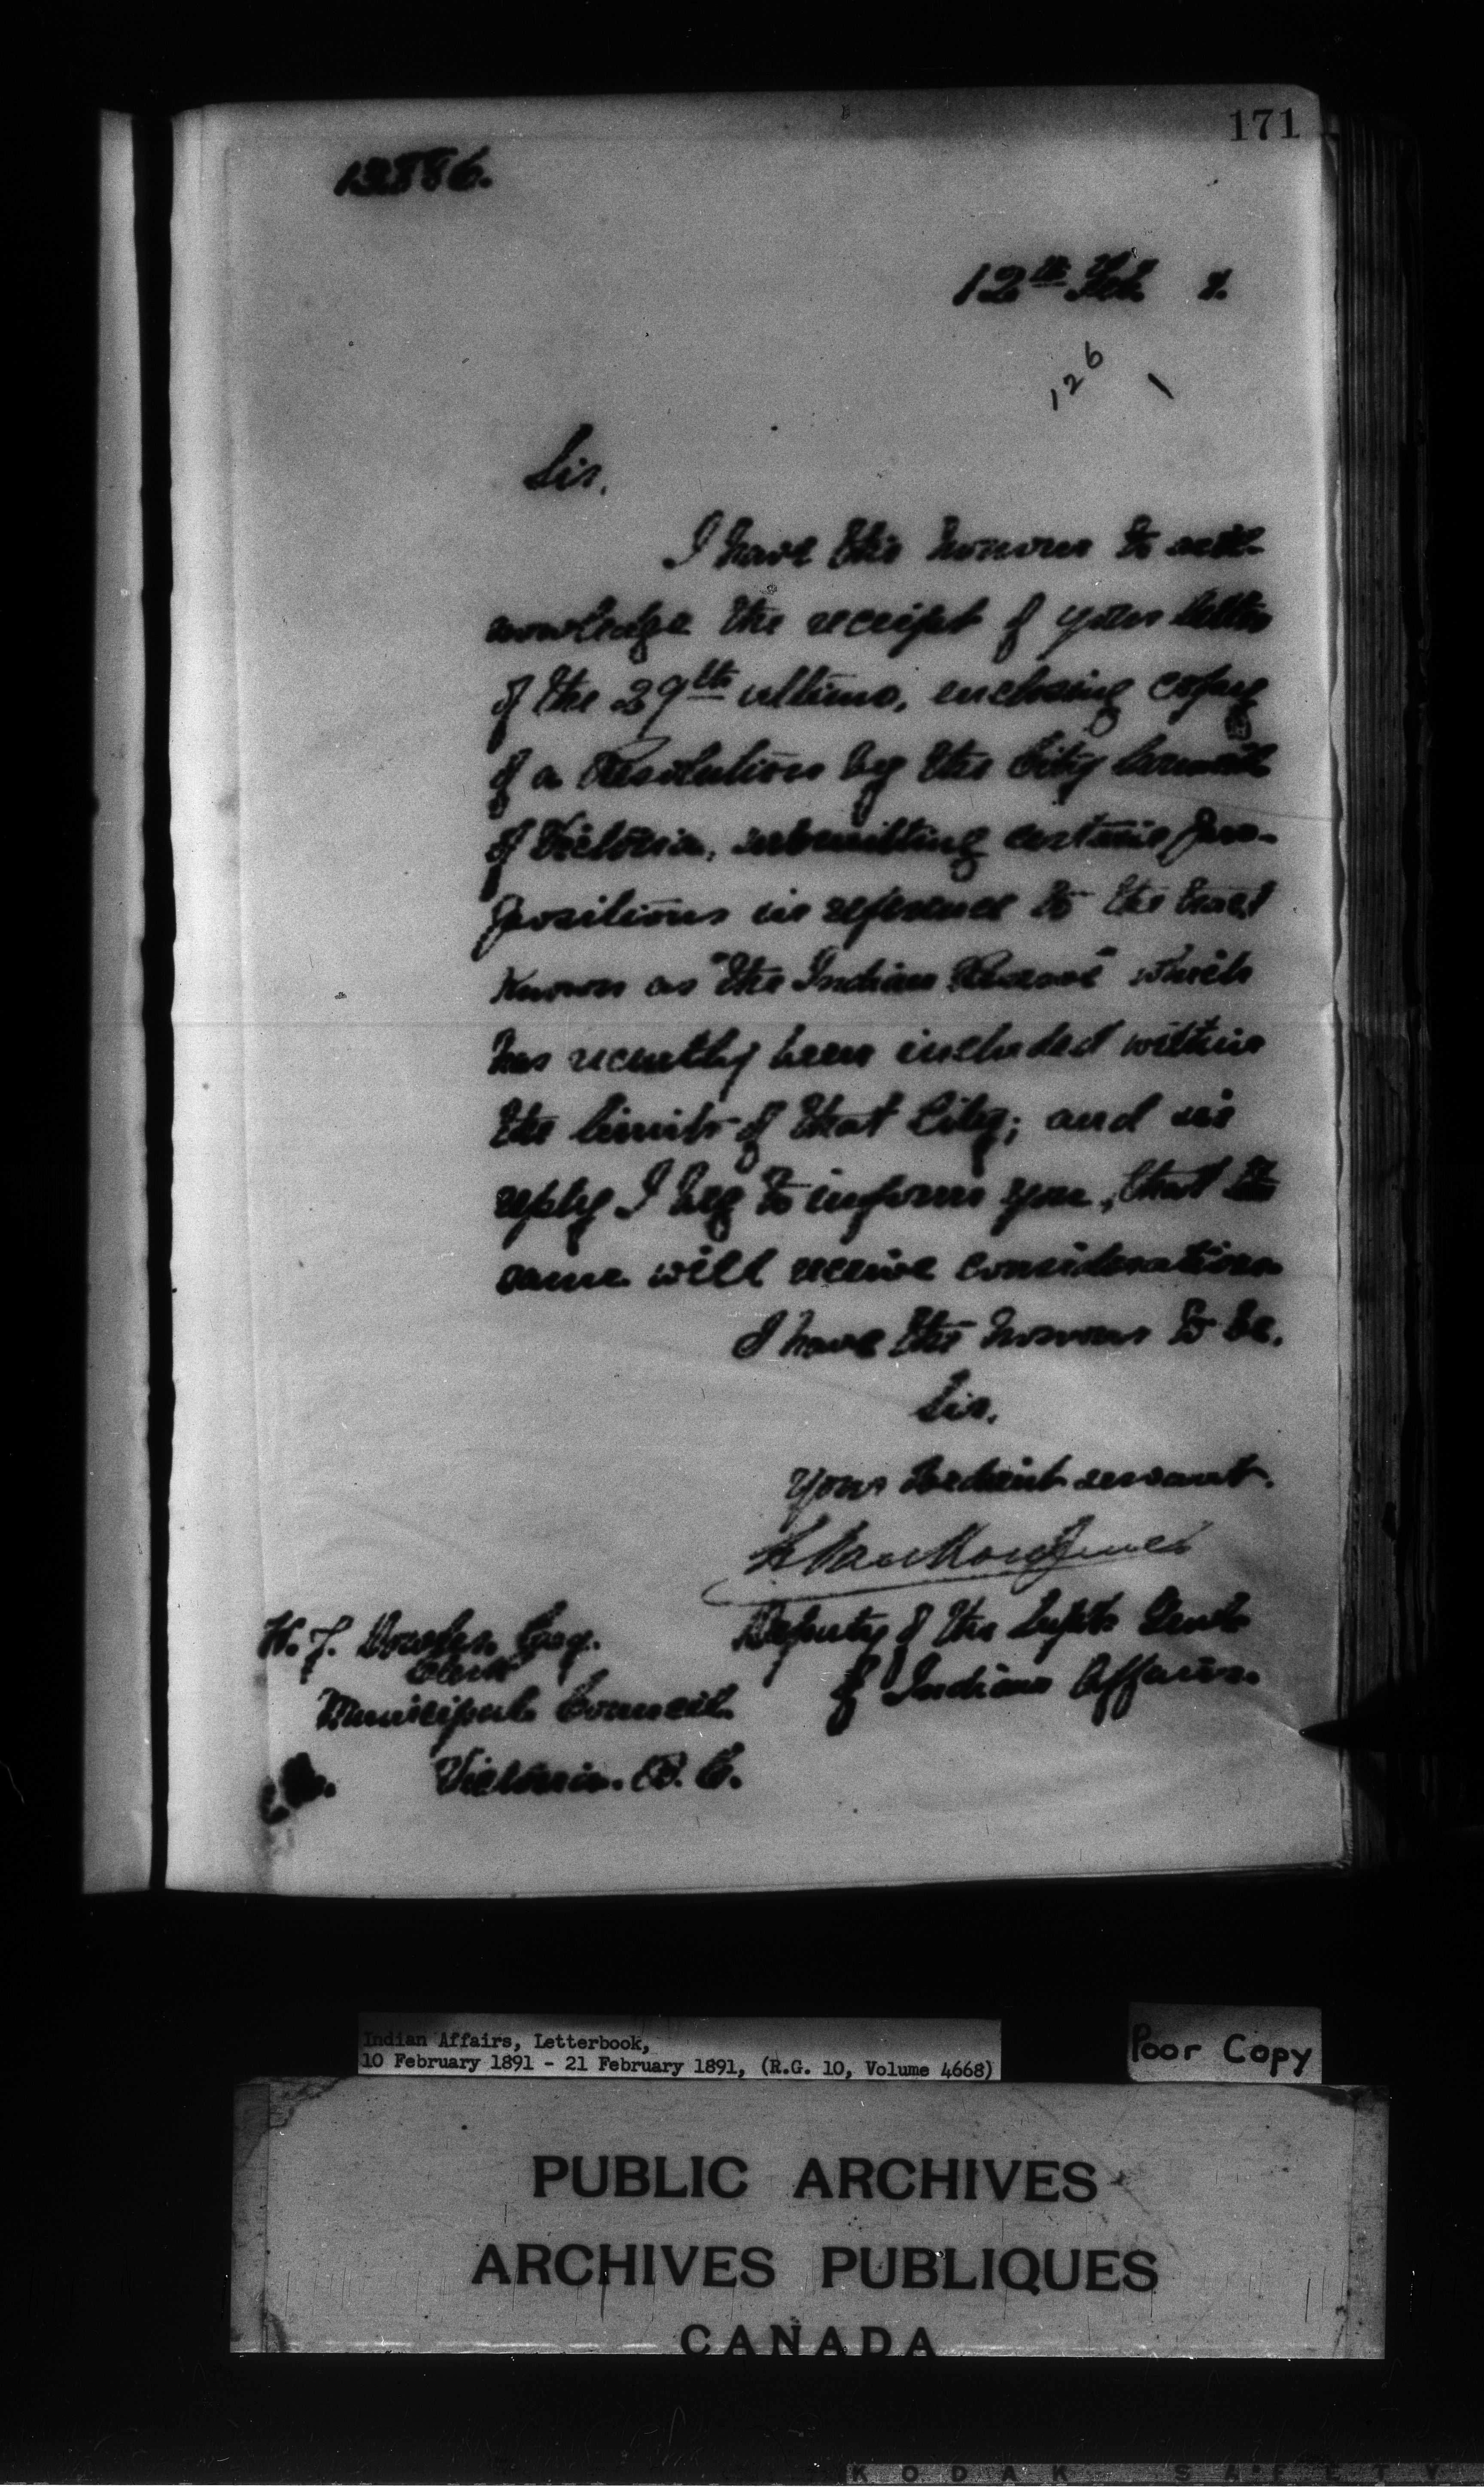 171
12th Feb 1.
126
1
Sir,
I have the honour to ack-
nowledge the receipt of your letter
of the 29th ultimo, enclosing copy
of a Resolution by the City Council
of Victoria, submitting certain pro-
positions in reference to the tract
known as "the Indian Reserve" which
has recently been included within
the limits of that City; and in
reply I beg to inform you, that the
same will receive consideration.
I have the honour to be,
Sir,
Your obedient servant,
Deputy of the Supt. Genl.
of Indian Affairs.
W. J. Dowler, Esq.
Clerk
Municipal Council.
Victoria. B. C.
Indian Affairs, Letterbook,
10 February 1891 - 21 February 1891, (R.G. 10, Volume 4668)
Poor Copy
PUBLIC ARCHIVES
ARCHIVES PUBLIQUES
CANADA
KODAK SAFETY